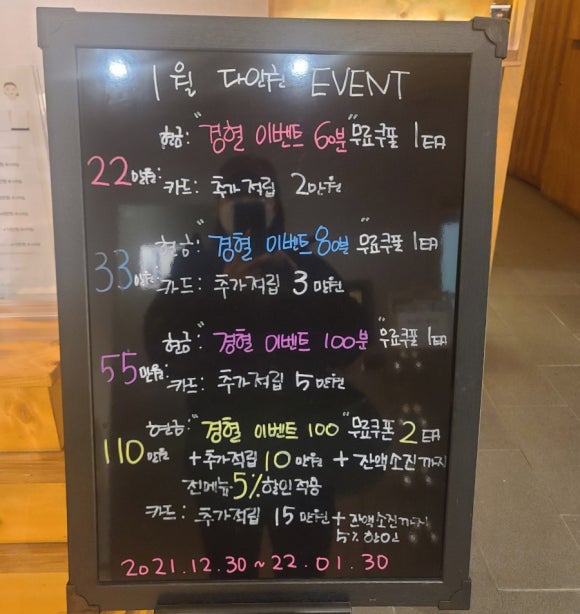 1월 다인권 EVENT
현금: "경혈 이벤트 60분" 무료쿠폰 1EA
22만원:
카드: 추가적립 2만원
현금: "경혈 이벤트 80분" 무료쿠폰 1EA
33만원:
카드: 추가적립 3만원
현금: "경혈 이벤트 100분" 무료쿠폰 1EA
55만원:
카드: 추가적립 5만원
현금: "경혈 이벤트 100" 무료쿠폰 2EA
110만원
+추가적립 10만원 + 잔액소진까지
전메뉴 5% 할인적용
카드: 추가적립 15만원 + 잔액소진까지
5% 할인
2021.12.30~22.01.30